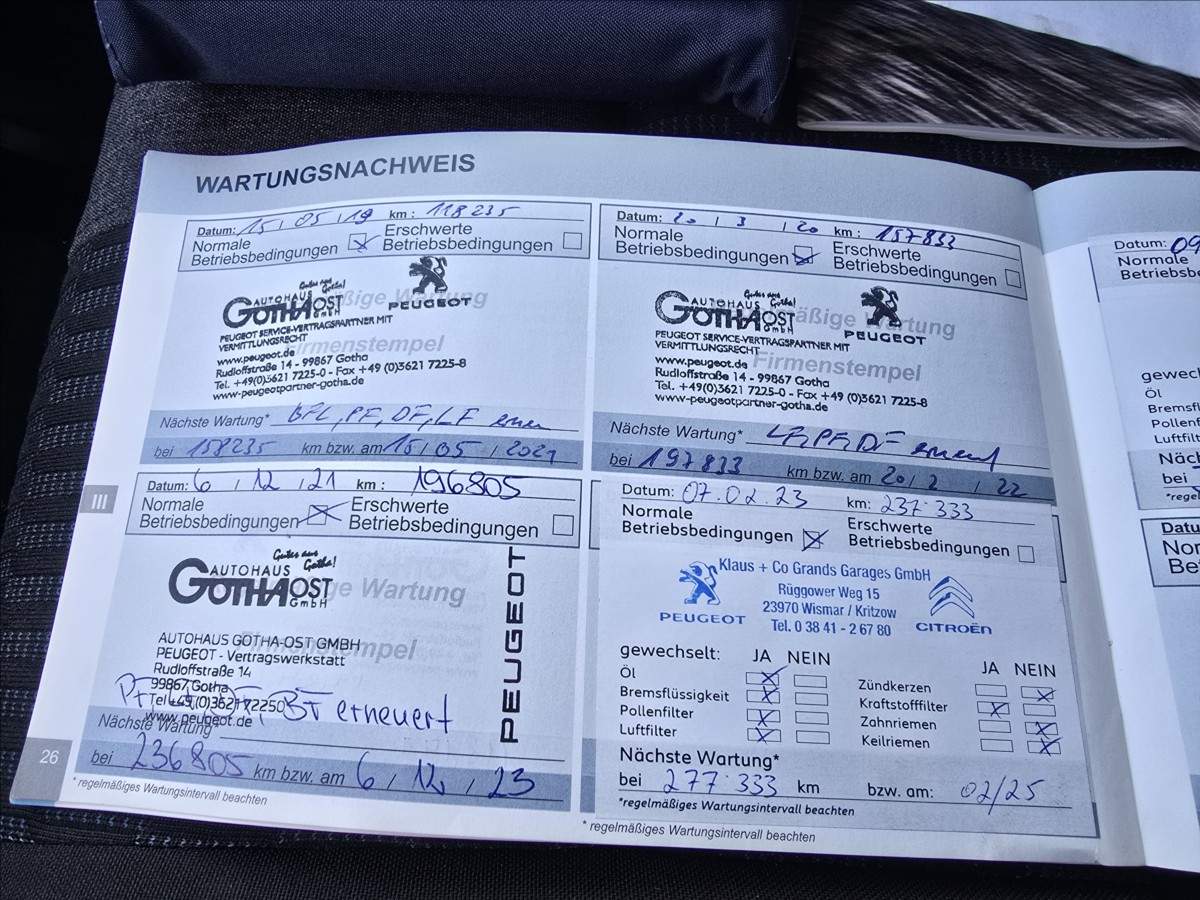 WARTUNGSNACHWEIS
Datum: 15 / 05 / 19 km : 118235
Normale Betriebsbedingungen
Erschwerte Betriebsbedingungen
Gutes aus Gotha!
AUTOHAUS
GOTHA OST
GmbH
PEUGEOT
PEUGEOT SERVICE-VERTRAGSPARTNER MIT
VERMITTLUNGSRECHT
Firmenstempel
www.peugeot.de
Rudloffstraße 14 - 99867 Gotha
Tel. +49(0)3621 7225-0 - Fax +49 (0)3621 7225-8
www-peugeotpartner-gotha.de
Nächste Wartung* BFL, PF, DF, LF
bei 158235 km bzw. am 15 / 05 / 2021
Datum: 20 / 3 / 20 km : 157833
Normale Betriebsbedingungen
Erschwerte Betriebsbedingungen
Gutes aus Gotha!
AUTOHAUS
GOTHA OST
GmbH
PEUGEOT
Wartung
PEUGEOT SERVICE-VERTRAGSPARTNER MIT
VERMITTLUNGSRECHT
Firmenstempel
www.peugeot.de
Rudloffstraße 14 - 99867 Gotha
Tel. +49(0)3621 7225-0 - Fax +49 (0)3621 7225-8
www-peugeotpartner-gotha.de
Nächste Wartung*
bei 197833 km bzw. am 20 / 2 / 22
III
Datum: 6 / 12 / 21 km : 196805
Normale Betriebsbedingungen
Erschwerte Betriebsbedingungen
Gutes aus Gotha!
AUTOHAUS
GOTHA OST
GmbH
Wartung
PEUGEOT
AUTOHAUS GOTHA-OST GMBH
PEUGEOT - Vertragswerkstatt
Firmenstempel
Rudloffstraße 14
99867 Gotha
Tel +49 (0)3621 72250
www.peugeot.de
erneuert
Nächste Wartung*
bei 236805 km bzw. am 6 / 12 / 23
26
* regelmäßiges Wartungsintervall beachten
Datum: 07.02.23 km: 237 333
Normale Betriebsbedingungen
Erschwerte Betriebsbedingungen
Klaus + Co Grands Garages GmbH
Rüggower Weg 15
23970 Wismar / Kritzow
Tel. 0 38 41 - 2 67 80
PEUGEOT
CITROËN
gewechselt: JA NEIN
Öl
Bremsflüssigkeit
Pollenfilter
Luftfilter
JA NEIN
Zündkerzen
Kraftstofffilter
Zahnriemen
Keilriemen
Nächste Wartung*
bei 277 333 km bzw. am: 02/25
*regelmäßiges Wartungsintervall beachten
* regelmäßiges Wartungsintervall beachten
Datum: 09
Normale
Betriebsb
gewech
Öl
Bremsfl
Pollenf
Luftfilt
Näch
bei
*rege
Datum
Nor
Be